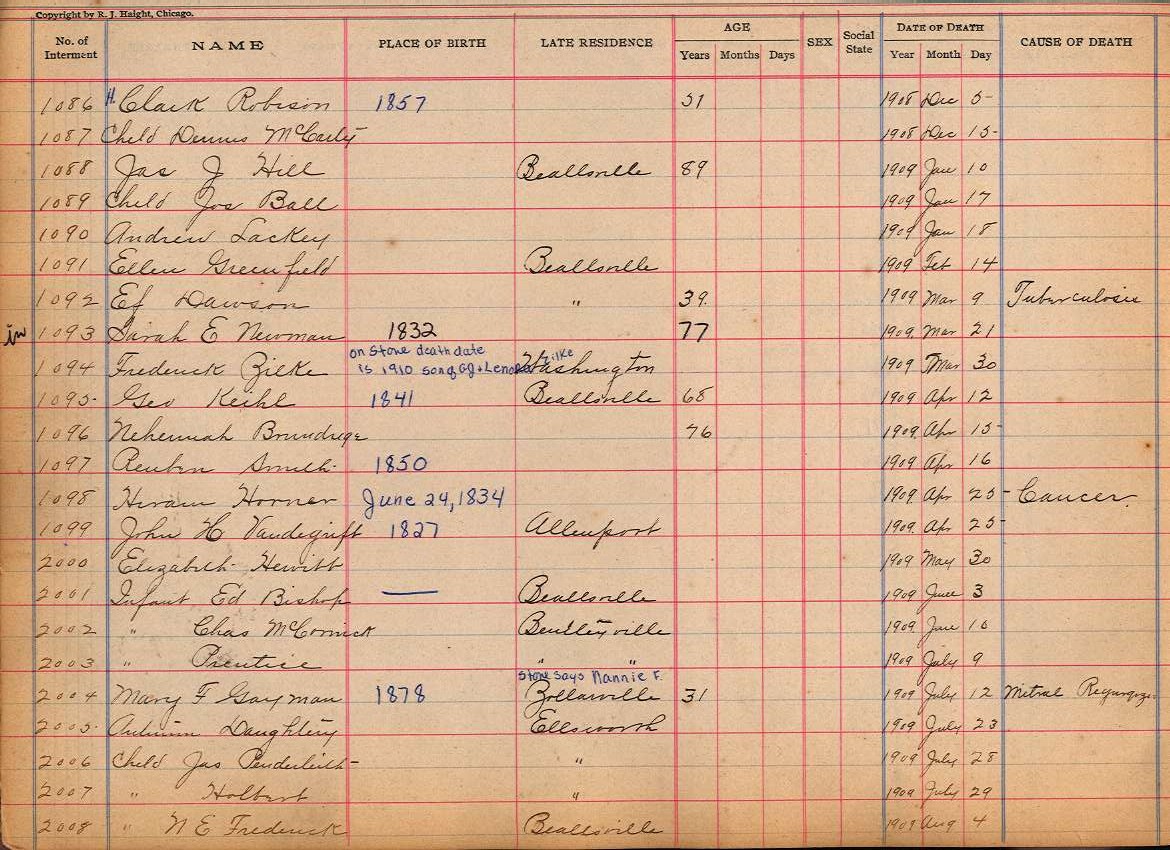 Copyright by R. J. Haight, Chicago.
No. of Interment NAME PLACE OF BIRTH LATE RESIDENCE AGE Years Months Days SEX Social State DATE OF DEATH Year Month Day CAUSE OF DEATH
1086 H. Clark Robison 1857 51 1908 Dec 5
1087 Child Dennis McCarty 1908 Dec 15
1088 Jas J Hill Beallsville 89 1909 Jan 10
1089 Child Jos Ball 1909 Jan 17
1090 Andrew Lackey 1909 Jan 18
1091 Ellen Greenfield Beallsville 1909 Feb 14
1092 Ef Dawson " 39 1909 Mar 9 Tuberculosis
in 1093 Sarah E Newman 1832 77 1909 Mar 21
on Stone death date
is 1910 son of GJ + Lenora Zilke
1094 Frederick Zilke Washington 1909 Mar 30
1095 Geo Keihl 1841 Beallsville 68 1909 Apr 12
1096 Nehemiah Brundrige 76 1909 Apr 15
1097 Reuben Smith 1850 1909 Apr 16
1098 Hiram Horner June 24, 1834 1909 Apr 25 Cancer
1099 John H Vandegrift 1827 Allenport 1909 Apr 25
2000 Elizabeth Hewitt 1909 May 30
2001 Infant Ed Bishop — Beallsville 1909 June 3
2002 " Chas McCormick Bentleyville 1909 June 10
2003 " Prentice " " 1909 July 9
Stone says Nannie F.
2004 Mary F Gayman 1878 Zollarsville 31 1909 July 12 Mitral
2005 Daughtery Ellsworth 1909 July 23
2006 Child Jas Penderleith " 1909 July 28
2007 " Holbert " 1909 July 29
2008 " N E Frederick Beallsville 1909 Aug 4